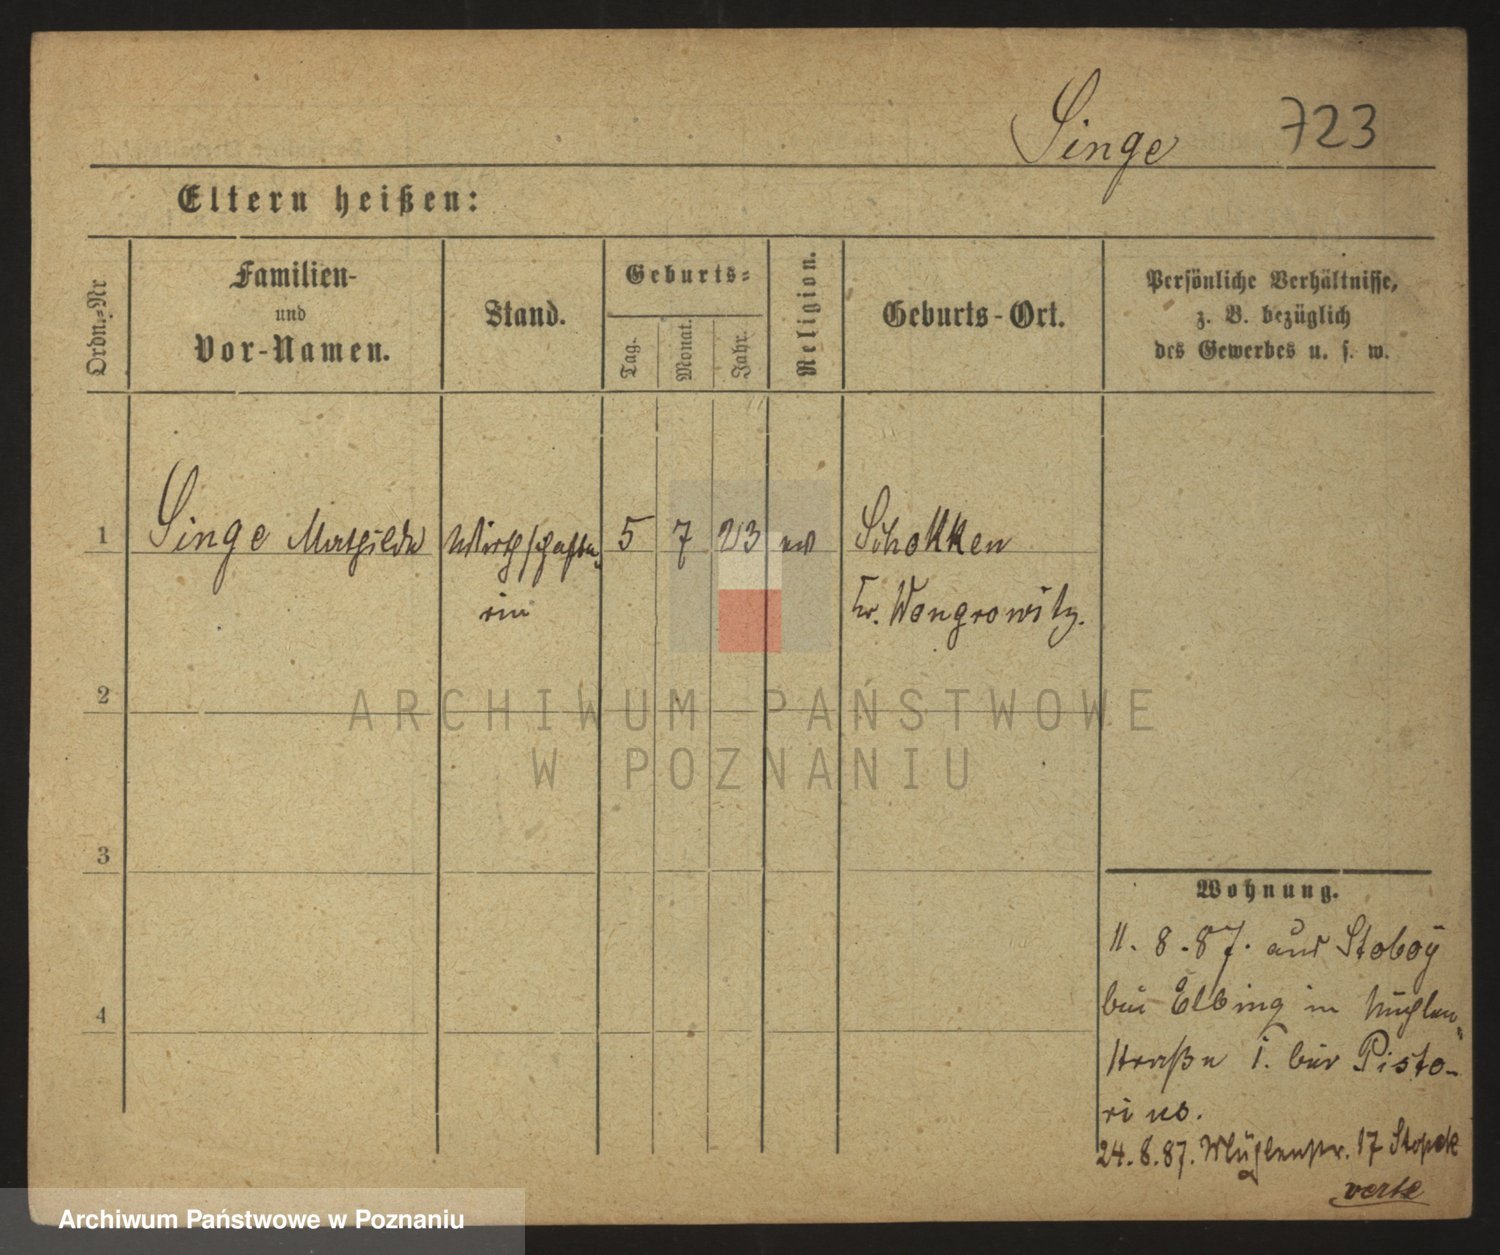 Singe 723
Eltern heißen:
Ordn.-Nr
Familien-
und
Vor-Namen.
Stand.
Geburts-
Tag.
Monat.
Jahr.
Religion.
Geburts-Ort.
Persönliche Verhältnisse,
z. B. bezüglich
des Gewerbes u. s. w.
1 Singe Mathilde Wirthschafte- 5 7 23 Schokken
rin Kr. Wongrowitz.
2
ARCHIWUM PAŃSTWOWE
W POZNANIU
3
Wohnung.
11. 8. 87. aus Stoboy
bei Elbing in Mühlen-
4
straße bei Pisto-
rius.
24. 8. 87. Mühlenstr. 17
verte
Archiwum Państwowe w Poznaniu